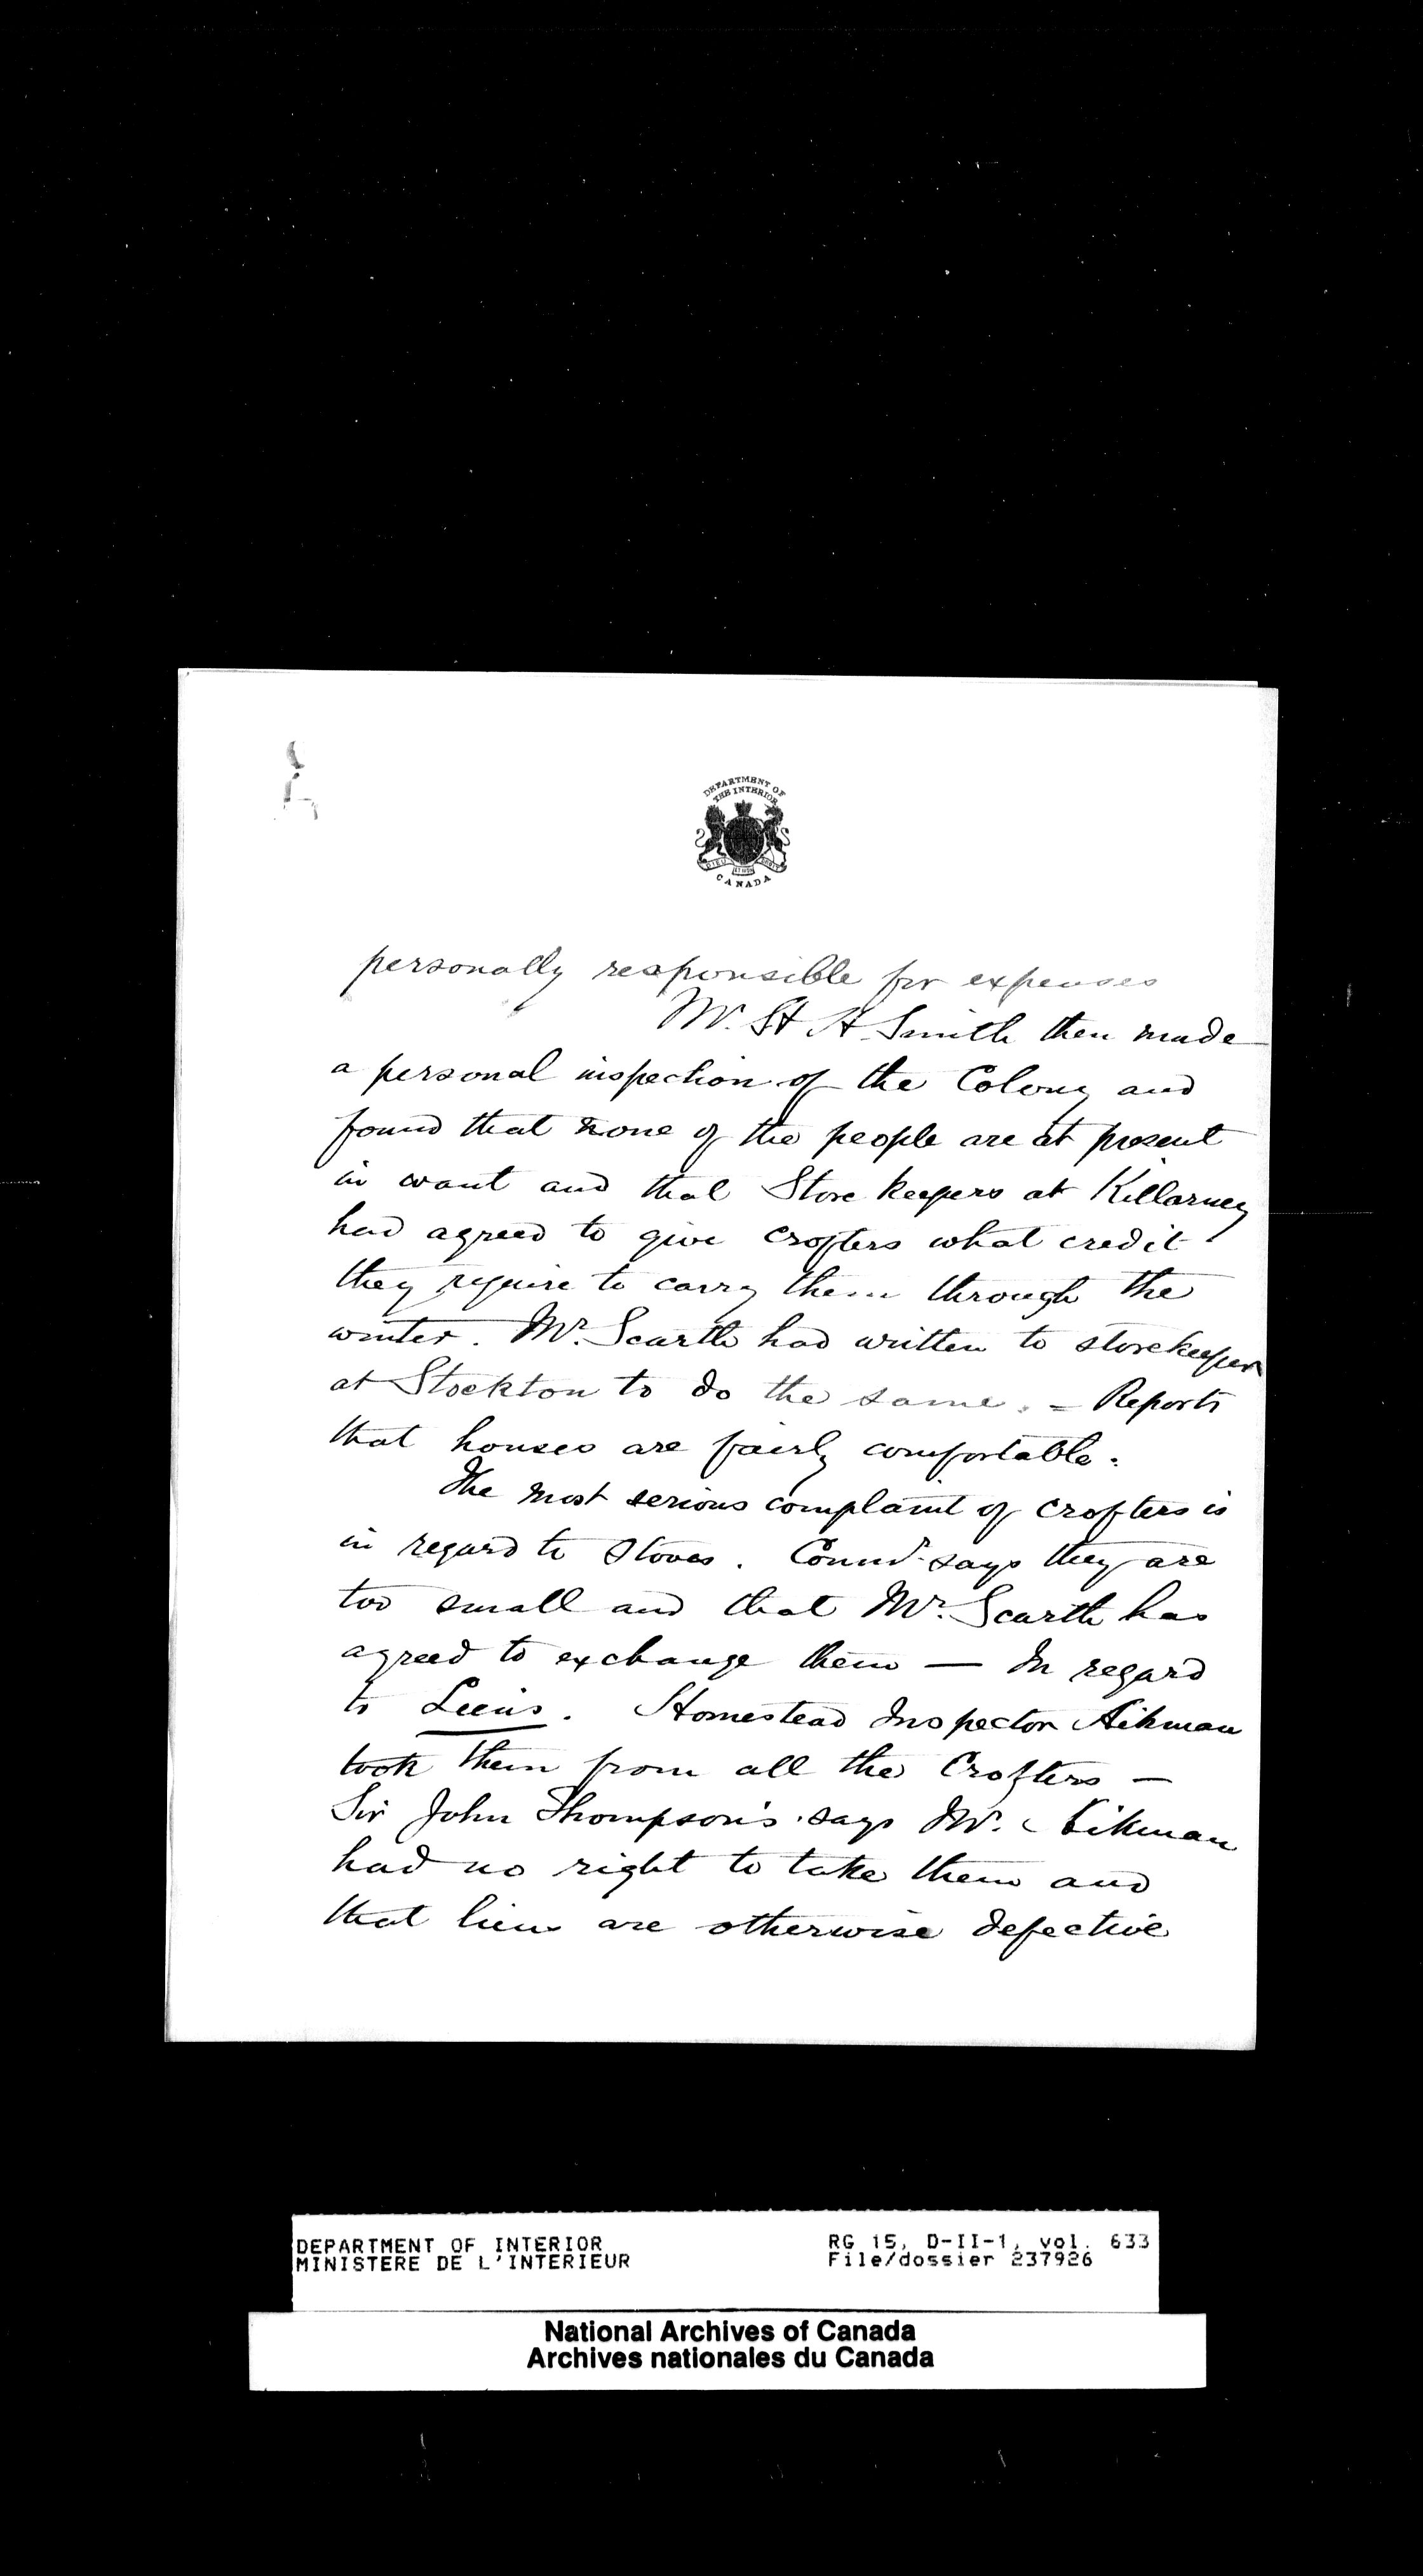 DEPARTMENT OF
THE INTERIOR
CANADA
personally responsible for expenses
Mr. H. H. Smith then made
a personal inspection of the Colony and
found that none of the people are at present
in want and that Store keepers at Killarney
had agreed to give crofters what credit
they require to carry them through the
winter. Mr. Scarth had written to storekeeper
at Stockton to do the same. = Reports
that houses are fairly comfortable.
The most serious complaint of crofters is
in regard to stoves. Commr. says they are
too small and that Mr. Scarth has
agreed to exchange them — In regard
to Liens. Homestead Inspector Aikman
took them from all the Crofters —
Sir John Thompson's says Mr. Aikman
had no right to take them and
that liens are otherwise defective
DEPARTMENT OF INTERIOR RG 15, D-II-1, vol. 633
MINISTERE DE L'INTERIEUR File/dossier 237926
National Archives of Canada
Archives nationales du Canada